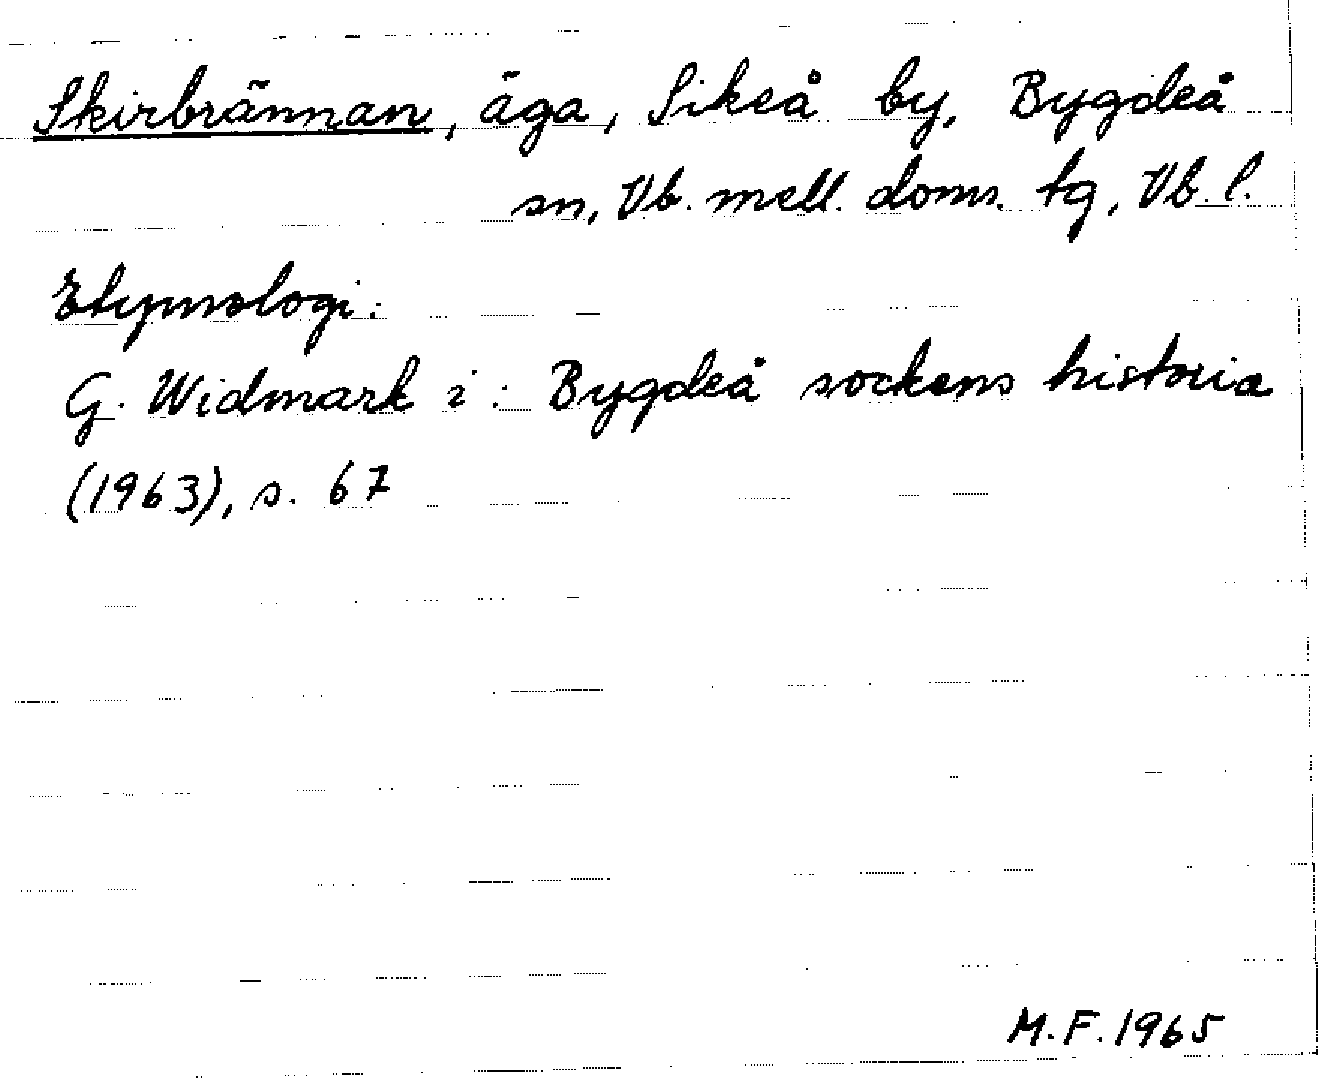 Skirbrännan, äga, Sikeå by, Bygdeå
sn, Vb. mell. doms. tg, Vb. l.
Etymologi:
G. Widmark i: Bygdeå sockens historia
(1963), s. 67
M.F. 1965